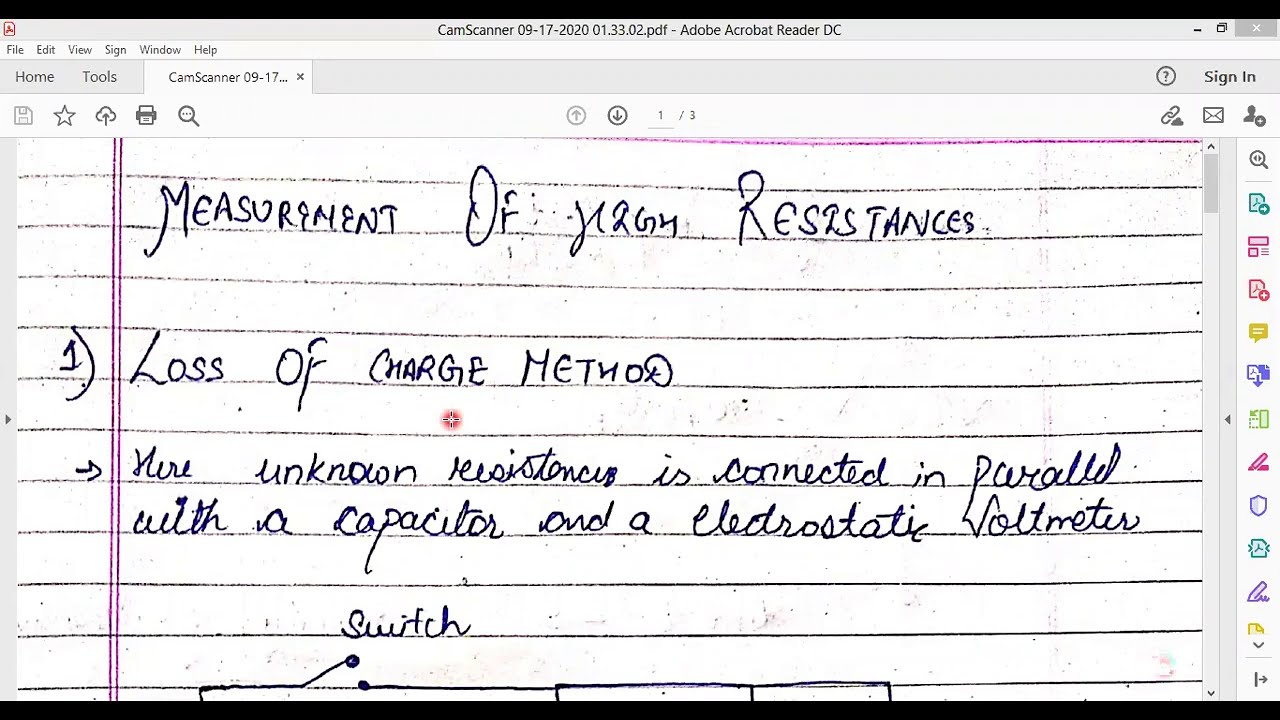 CamScanner 09-17-2020 01.33.02.pdf - Adobe Acrobat Reader DC
File Edit View Sign Window Help
Home Tools CamScanner 09-17... × Sign In
1 / 3
MEASUREMENT OF HIGH RESISTANCES
1) LOSS OF CHARGE METHOD
→ Here unknown resistances is connected in parallel
with a capacitor and a electrostatic Voltmeter
Switch